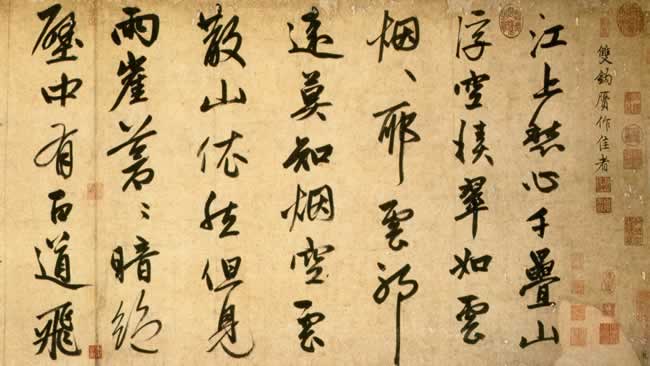 雙鈎贋作佳者
江上愁心千疊山
浮空積翠如雲
烟、耶雲耶
遠莫知烟空雲
散山依然但見
兩崖蒼〻暗絶
壁中有百道飛